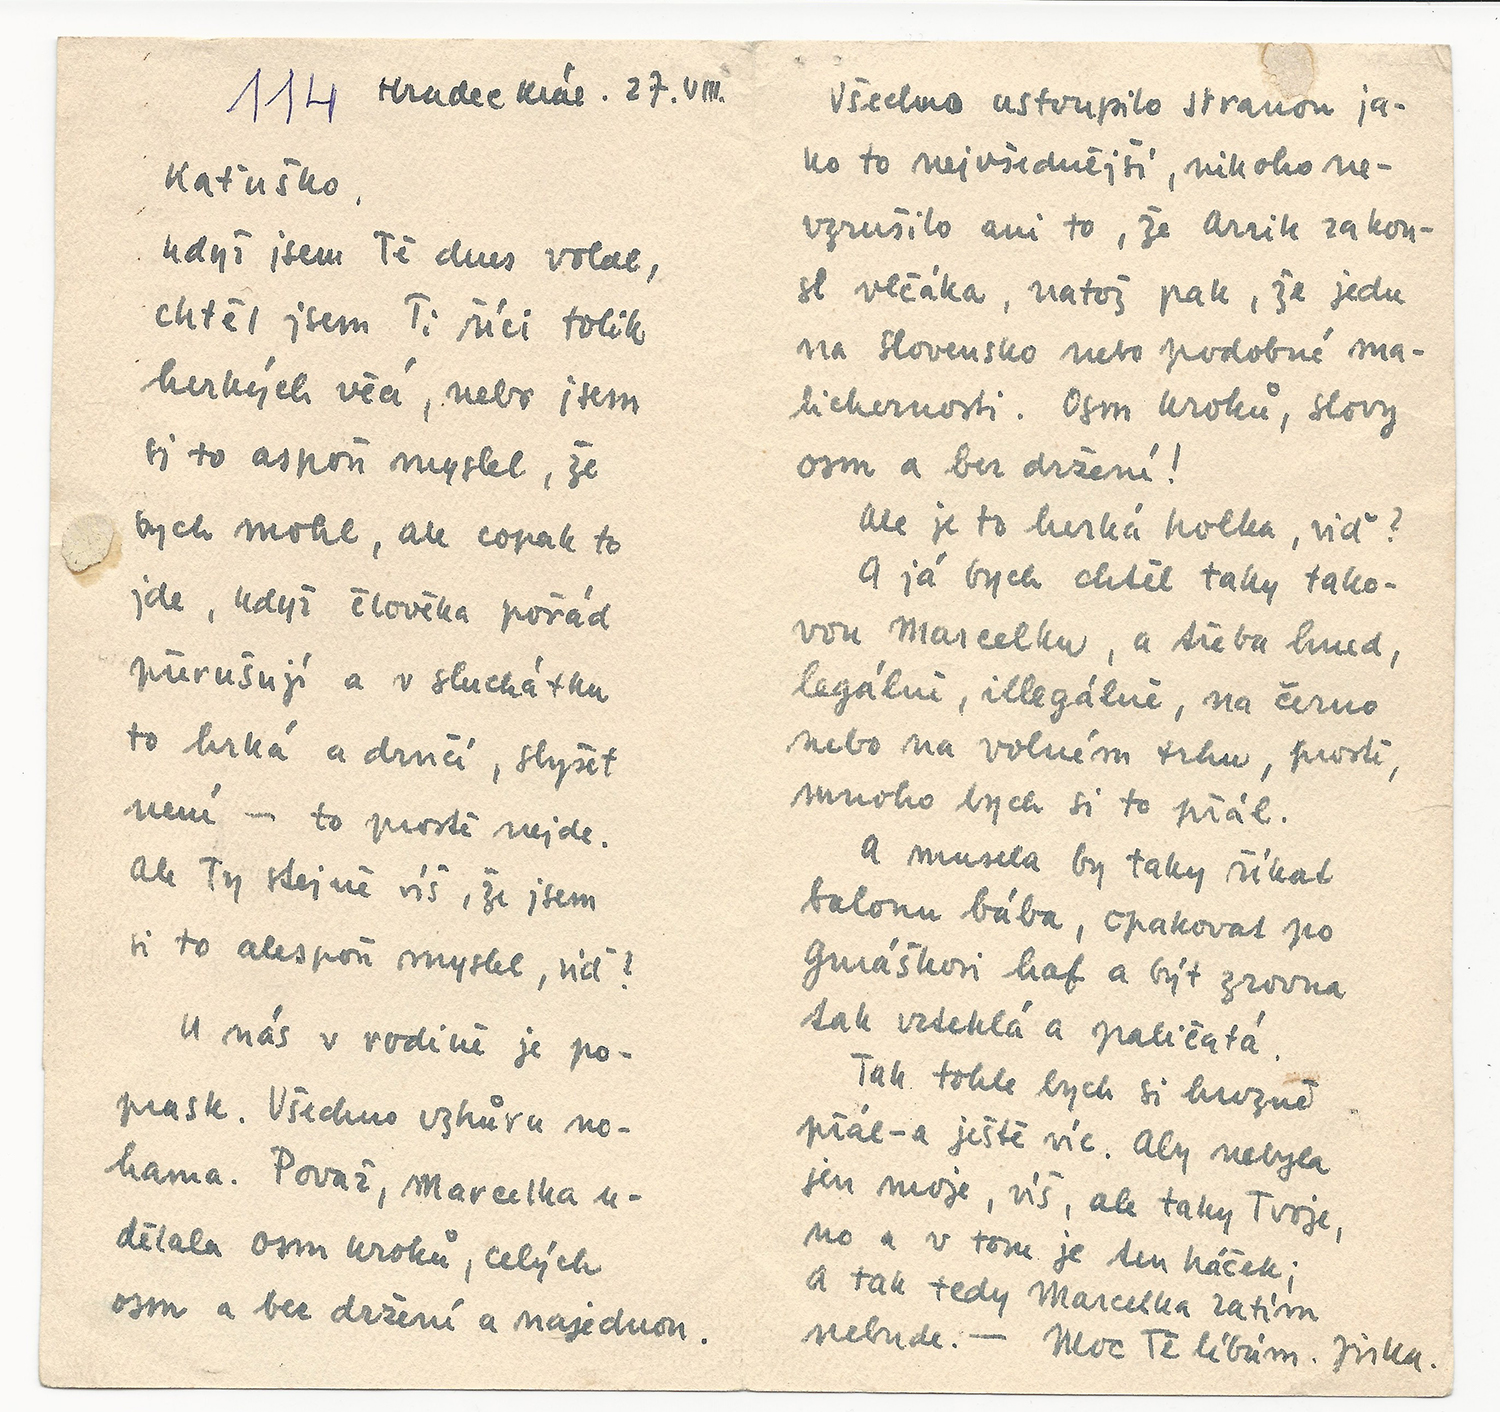 114 Hradec Král. 27.VIII.
Kaťuško,
když jsem Tě dnes volal,
chtěl jsem Ti říci tolik
hezkých věcí, nebo jsem
si to aspoň myslel, že
bych mohl, ale copak to
jde, když člověka pořád
přerušují a v sluchátku
to hrká a drnčí, slyšet
není — to prostě nejde.
Ale Ty stejně víš, že jsem
si to alespoň myslel, viď?
U nás v rodině je po-
prask. Všechno vzhůru no-
hama. Považ, Marcelka u-
dělala osm kroků, celých
osm a bez držení a najednou.
Všechno ustoupilo stranou ja-
ko to nejvšednější, nikoho ne-
vzrušilo ani to, že Arrik zakou-
sl vlčáka, natož pak, že jedu
na Slovensko nebo podobné ma-
lichernosti. Osm kroků, slovy
osm a bez držení!
Ale je to hezká holka, viď?
A já bych chtěl taky tako-
vou Marcelku, a třeba hned,
legálně, illegálně, na černo
nebo na volném trhu, prostě,
mnoho bych si to přál.
A musela by taky říkat
balonu bába, opakovat po
Gmáškovi haf a být zrovna
tak vzteklá a paličatá.
Tak tohle bych si hrozně
přál - a ještě víc. Aby nebyla
jen moje, víš, ale taky Tvoje,
no a v tom je ten háček;
A tak tedy Marcelka zatím
nebude. — Moc Tě líbám. Jirka.